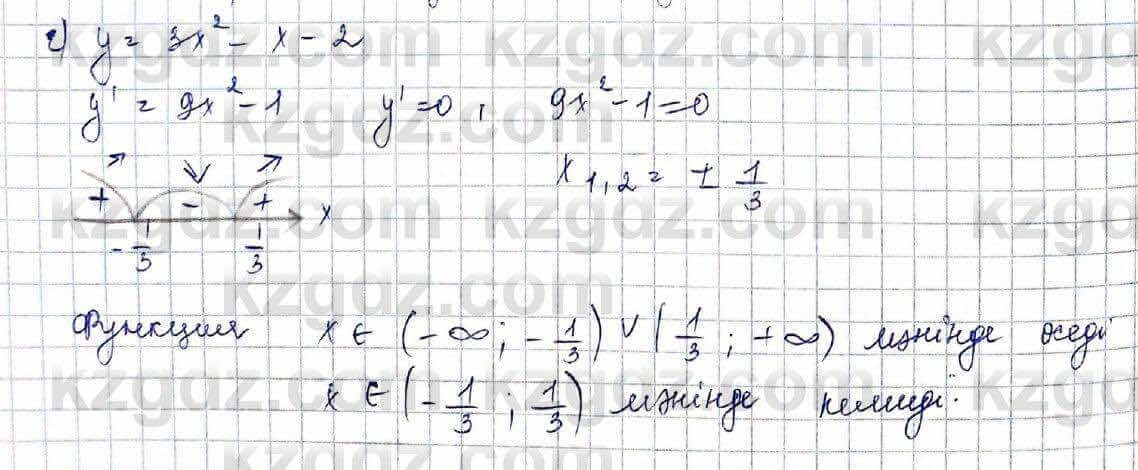 г) y = 3x² - x - 2
y' = 9x² - 1 y' = 0, 9x² - 1 = 0
x₁,₂ = ± 1/3
+ - + x
- 1/3 1/3
Функция x ∈ (-∞; -1/3) ∪ (1/3; +∞) мәнінде өседі
x ∈ (-1/3; 1/3) мәнінде кемиді.
kzgdz.com